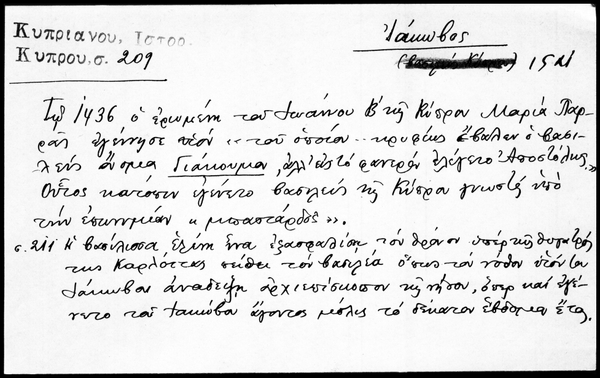 Κυπριανού, Ιστορ.
Κύπρου, σ. 209
Ιάκωβος
15
Τῷ 1436 ὁ ἐρωμένη τοῦ Ἰωάννου Β' τῆς Κύπρου Μαρία Πατ-
ρᾶς ἐγέννησε υἱὸν «τοῦ ὁποίου κρυφίως ἔβαλεν ὁ βασι-
λεὺς ὄνομα Γιάκουμα, ἀλλ' εἰς τὸ φανερὸν ἐλέγετο Ἀποστόλης»
Οὗτος κατόπιν ἐγένετο βασιλεὺς τῆς Κύπρου γνωστὸς ὑπὸ
τὴν ἐπωνυμίαν «μπαστάρδος».
σ. 211 Ἡ βασίλισσα Ἑλένη ἵνα ἐξασφαλίσῃ τὸν θρόνον ὑπὲρ τῆς θυγατρός
της Καρλόττας πείθει τὸν βασιλέα ὅπως τὸν νόθον υἱόν του
Ἰάκωβον ἀναδείξῃ ἀρχιεπίσκοπον τῆς νήσου, ὅπερ καὶ ἐγέ-
νετο τοῦ Ἰακώβου ἄγοντος μόλις τὸ δέκατον ἕβδομον ἔτος.